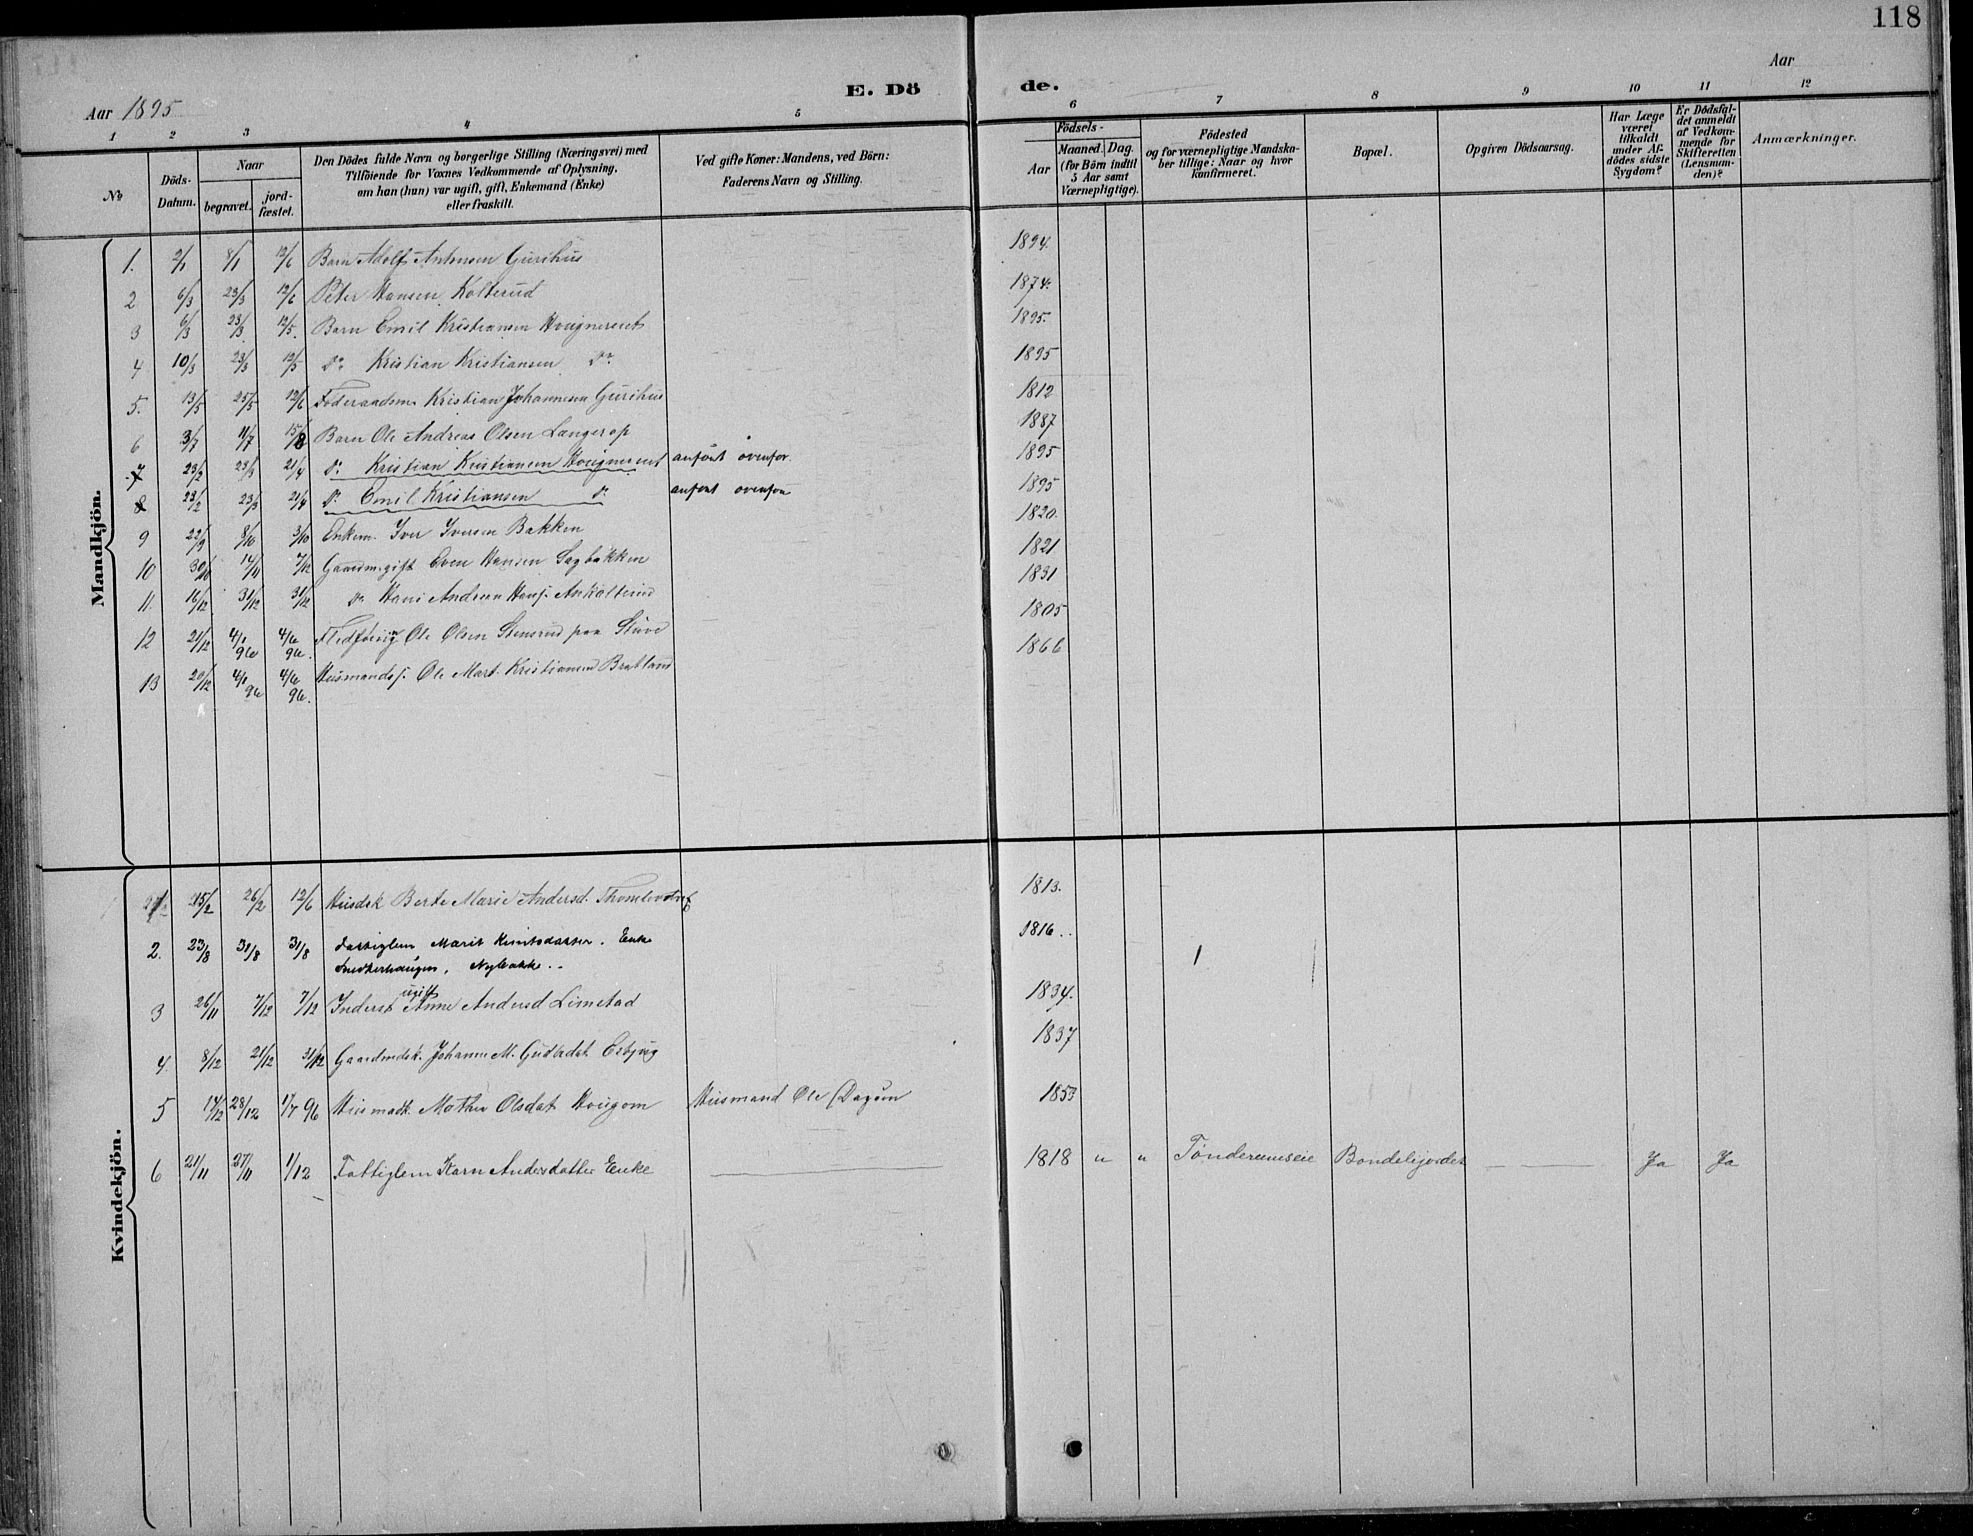 118
E. Dö de.
Aar 1895 Aar
1 2 3 4 5 6 7 8 9 10 11 12
No
Döds-Datum.
Naar
begravet.
jord-fæstet.
Den Dödes fulde Navn og borgerlige Stilling (Næringsvei) med
Tilföiende for Voxnes Vedkommende af Oplysning,
om han (hun) var ugift, gift, Enkemand (Enke)
eller fraskilt.
Ved gifte Koner: Mandens, ved Börn:
Faderens Navn og Stilling.
Födsels-
Aar
Maaned. Dag.
(for Börn indtil
5 Aar samt
Værnepligtige).
Födested
og for værnepligtige Mandska-
ber tillige: Naar og hvor
konfirmeret.
Bopæl.
Opgiven Dödsaarsag.
Har Læge
været
tilkaldt
under Af-
dödes sidste
Sygdom?
Er Dödsfal-
det anmeldt
af Vedkom-
mende for
Skifteretten
(Lensman-
den)?
Anmærkninger.
Mandkjön.
1. 2/1 8/1 12/6 Barn Adolf Antonsen Gurihus 1894.
2 6/3 23/3 12/6 Peter Hansen Kolterud 1874.
3 6/3 23/3 12/5. Barn Emil Kristiansen Hougnereiet 1895.
4 10/3 23/3 12/5 Do Kristian Kristiansen Do 1895
5. 13/5 25/5 12/6 Föderaadsm. Kristian Johannesen Gurihus 1812
6 3/7 11/7 15/8 Barn Ole Andreas Olsen Langerop 1887
7 23/2 23/3 21/4 Do Kristian Kristiansen Hougnereiet anfört ovenfor. 1895
8 23/2 23/3 21/4 Do Emil Kristiansen Do anfört ovenfor 1895
9 22/9 8/10 3/10 Enkem. Iver Iversen Bakken 1820.
10 30/10 14/11 7/12 Gaardm. gift Even Hansen Sagbakken 1821
11. 16/12 31/12 31/12 Do Hans Andrean Hans. Ankolterud 1831
12 21/12 4/1 96 4/6 96. Ole Olsen Stensrud paa Stuve 1805
13 20/12 4/1 96 4/6 96. Husmands. Ole Mart. Kristiansen Bratland 1866
Kvindekjön.
15/2 26/2 12/6 Husdsk Berte Marie Andersd. 1813.
2. 23/8 31/8 31/8 Fattiglem Marit Knutsdatter. Enke 1816..
Snedkerhaugen, Nybakke..
ugift
3 26/11 7/12 7/12 Inderst Anne Andersd Limstad 1834.
4. 8/12 21/12 31/12 Gaardmdsk. Johanne M. Gudbdat. Esbjug 1837
5 14/12 28/12 1/7 96 Husmadk. Mathea Olsdat. Hougom Husmand Ole 1853
6 21/11 27/11 1/12 Fattiglem Karn Andersdatter Enke 1818 " " Tönderumseie Bondeligjordet Ja Ja